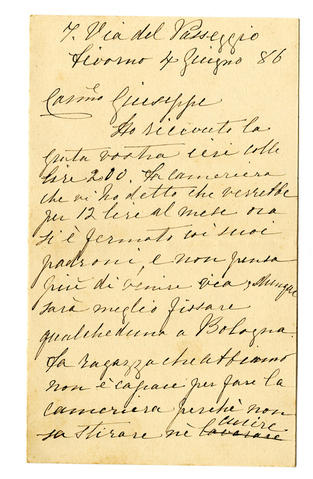 7. Via del Passeggio
Livorno 4 Giugno 86
Carissmo Giuseppe
Ho ricevuto la
grata vostra ieri colle
lire 200. La cameriera
che vi ho detto che verrebbe
per 12 lire al mese ora
si è fermata coi suoi
padroni, e non pensa
più di venire via, dunque
sarà meglio fissare
qualcheduna a Bologna.
La ragazza che abbiamo
non è capace per fare la
cameriera perchè non
sa stirare nè cucire